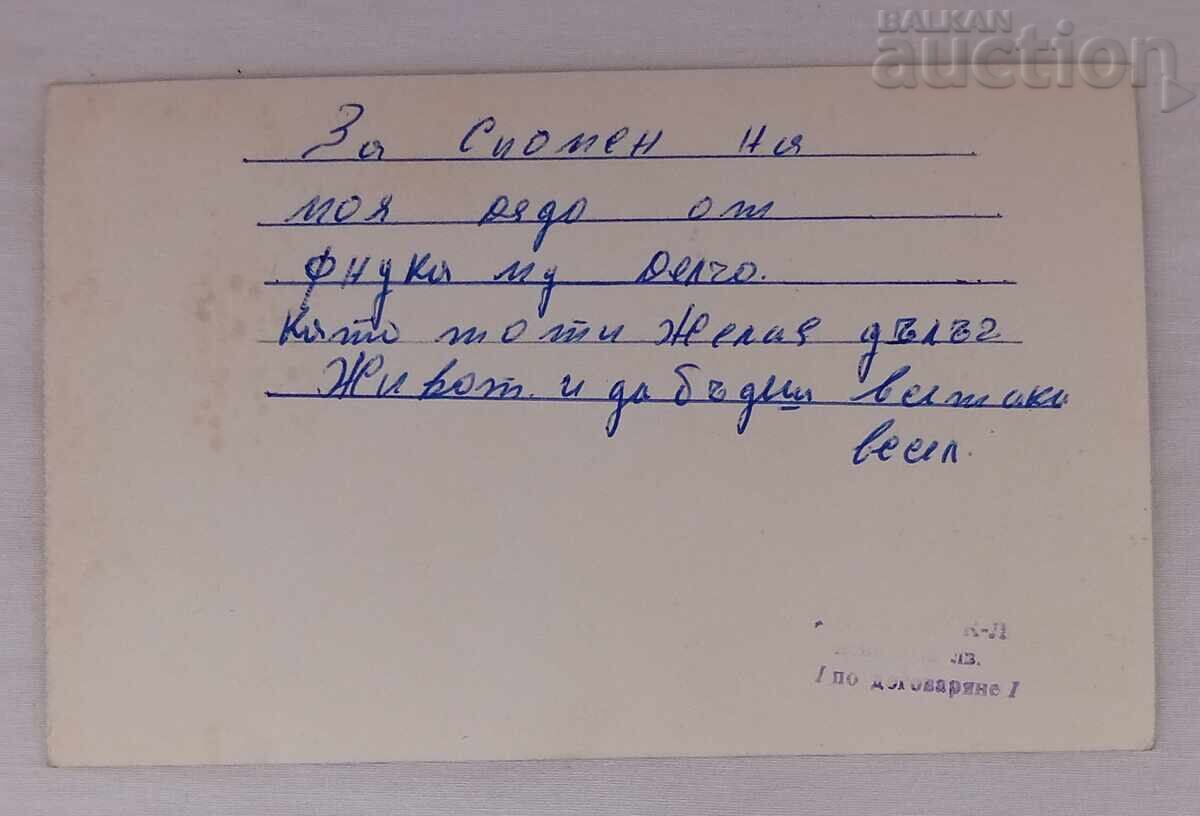 BALKAN
auction
За Спомен на
моя дядо от
фнука му Делчо.
Като то ти желая дълъг
Живот. и да бъдиш всетаки
весил.
лв.
/ по договаряне /